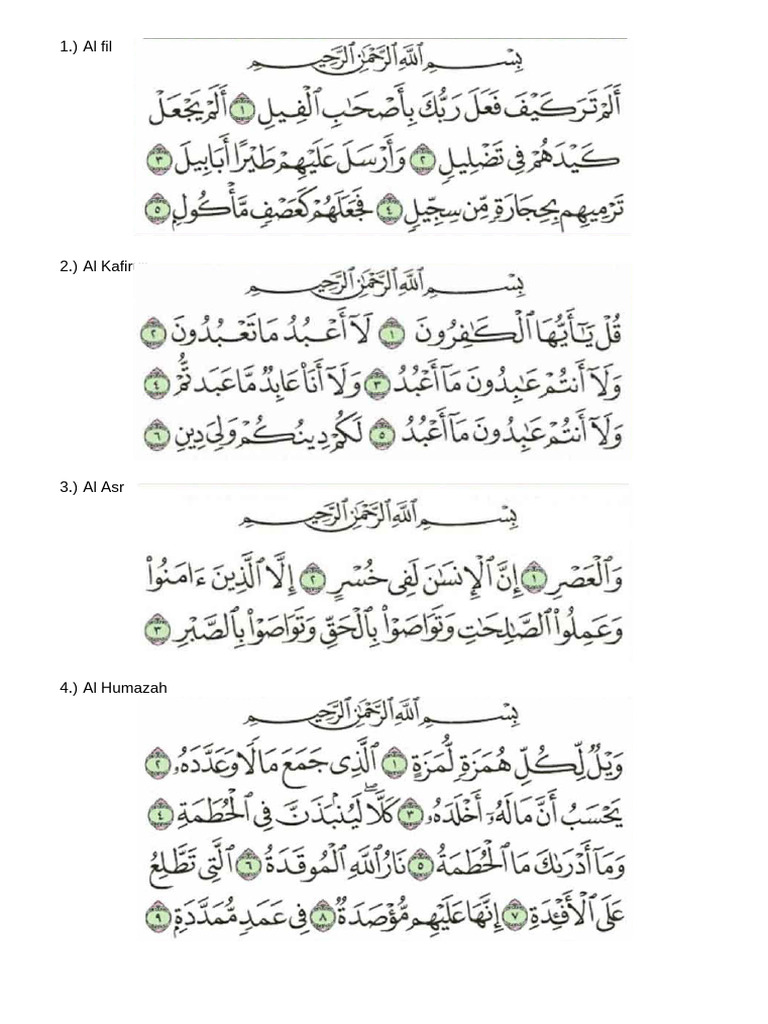 1.) Al fil
بِسْمِ ٱللَّهِ ٱلرَّحْمَٰنِ ٱلرَّحِيمِ
أَلَمْ تَرَ كَيْفَ فَعَلَ رَبُّكَ بِأَصْحَٰبِ ٱلْفِيلِ ١ أَلَمْ يَجْعَلْ
كَيْدَهُمْ فِى تَضْلِيلٍ ٢ وَأَرْسَلَ عَلَيْهِمْ طَيْرًا أَبَابِيلَ ٣
تَرْمِيهِم بِحِجَارَةٍ مِّن سِجِّيلٍ ٤ فَجَعَلَهُمْ كَعَصْفٍ مَّأْكُولٍۭ ٥
2.) Al Kafir
بِسْمِ ٱللَّهِ ٱلرَّحْمَٰنِ ٱلرَّحِيمِ
قُلْ يَٰٓأَيُّهَا ٱلْكَٰفِرُونَ ١ لَآ أَعْبُدُ مَا تَعْبُدُونَ ٢
وَلَآ أَنتُمْ عَٰبِدُونَ مَآ أَعْبُدُ ٣ وَلَآ أَنَا۠ عَابِدٌ مَّا عَبَدتُّمْ ٤
وَلَآ أَنتُمْ عَٰبِدُونَ مَآ أَعْبُدُ ٥ لَكُمْ دِينُكُمْ وَلِىَ دِينِ ٦
3.) Al Asr
بِسْمِ ٱللَّهِ ٱلرَّحْمَٰنِ ٱلرَّحِيمِ
وَٱلْعَصْرِ ١ إِنَّ ٱلْإِنسَٰنَ لَفِى خُسْرٍ ٢ إِلَّا ٱلَّذِينَ ءَامَنُوا۟
وَعَمِلُوا۟ ٱلصَّٰلِحَٰتِ وَتَوَاصَوْا۟ بِٱلْحَقِّ وَتَوَاصَوْا۟ بِٱلصَّبْرِ ٣
4.) Al Humazah
بِسْمِ ٱللَّهِ ٱلرَّحْمَٰنِ ٱلرَّحِيمِ
وَيْلٌ لِّكُلِّ هُمَزَةٍ لُّمَزَةٍ ١ ٱلَّذِى جَمَعَ مَالًا وَعَدَّدَهُۥ ٢
يَحْسَبُ أَنَّ مَالَهُۥٓ أَخْلَدَهُۥ ٣ كَلَّا ۖ لَيُنۢبَذَنَّ فِى ٱلْحُطَمَةِ ٤
وَمَآ أَدْرَىٰكَ مَا ٱلْحُطَمَةُ ٥ نَارُ ٱللَّهِ ٱلْمُوقَدَةُ ٦ ٱلَّتِى تَطَّلِعُ
عَلَى ٱلْأَفْـِٔدَةِ ٧ إِنَّهَا عَلَيْهِم مُّؤْصَدَةٌ ٨ فِى عَمَدٍ مُّمَدَّدَةٍۭ ٩